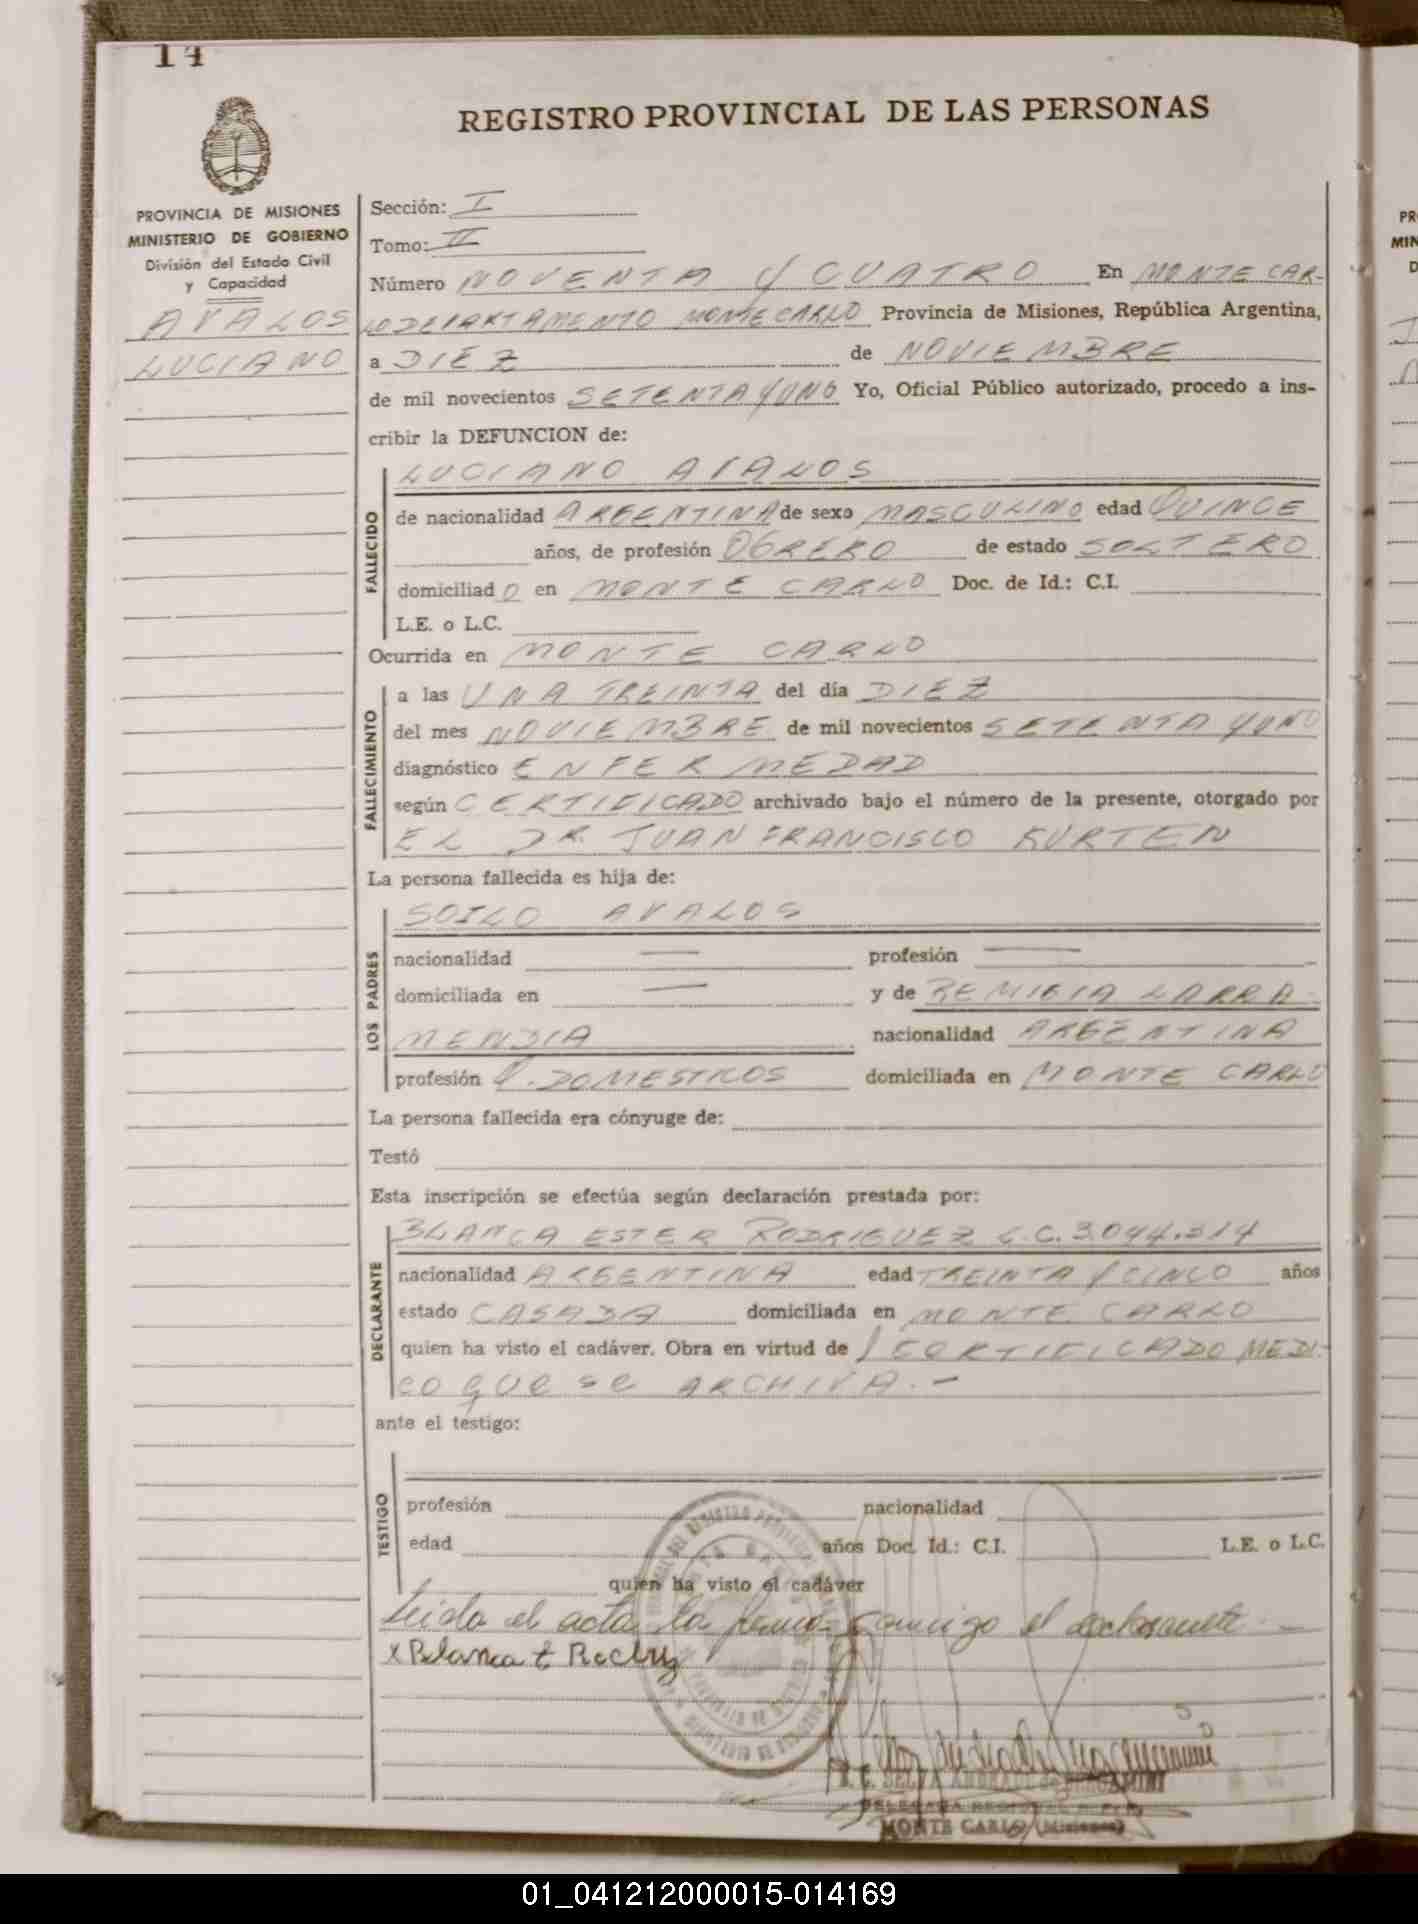 14
REGISTRO PROVINCIAL DE LAS PERSONAS
PROVINCIA DE MISIONES
MINISTERIO DE GOBIERNO
División del Estado Civil
y Capacidad
AVALOS
LUCIANO
Sección: I
Tomo: II
Número NOVENTA Y CUATRO En MONTE CAR-
LO DEPARTAMENTO MONTECARLO Provincia de Misiones, República Argentina,
a DIEZ de NOVIEMBRE
de mil novecientos SETENTA Y UNO Yo, Oficial Público autorizado, procedo a ins-
cribir la DEFUNCION de:
FALLECIDO
LUCIANO AVALOS
de nacionalidad ARGENTINA de sexo MASCULINO edad QUINCE
años, de profesión OBRERO de estado SOLTERO
domiciliado en MONTE CARLO Doc. de Id.: C.I.
L.E. o L.C.
Ocurrida en MONTE CARLO
FALLECIMIENTO
a las UNA TREINTA del día DIEZ
del mes NOVIEMBRE de mil novecientos SETENTA Y UNO
diagnóstico ENFERMEDAD
según CERTIFICADO archivado bajo el número de la presente, otorgado por
EL DR. JUAN FRANCISCO KURTEN
La persona fallecida es hija de:
LOS PADRES
SOILO AVALOS
nacionalidad — profesión —
domiciliada en — y de REMIGIA LARRA-
MENDIA nacionalidad ARGENTINA
profesión Q. DOMESTICOS domiciliada en MONTE CARLO
La persona fallecida era cónyuge de:
Testó
Esta inscripción se efectúa según declaración prestada por:
DECLARANTE
BLANCA ESTER RODRIGUEZ L.C. 3.044.314
nacionalidad ARGENTINA edad TREINTA Y CINCO años
estado CASADA domiciliada en MONTE CARLO
quien ha visto el cadáver. Obra en virtud de 1 CERTIFICADO MEDI-
CO QUE SE ARCHIVA.-
ante el testigo:
TESTIGO
profesión nacionalidad
edad años Doc. Id.: C.I. L.E. o L.C.
quien ha visto el cadáver
Leida el acta la firma conmigo el declarante
x Blanca E
DELEGADA REGIONAL
MONTE CARLO (Misiones)
01_041212000015-014169